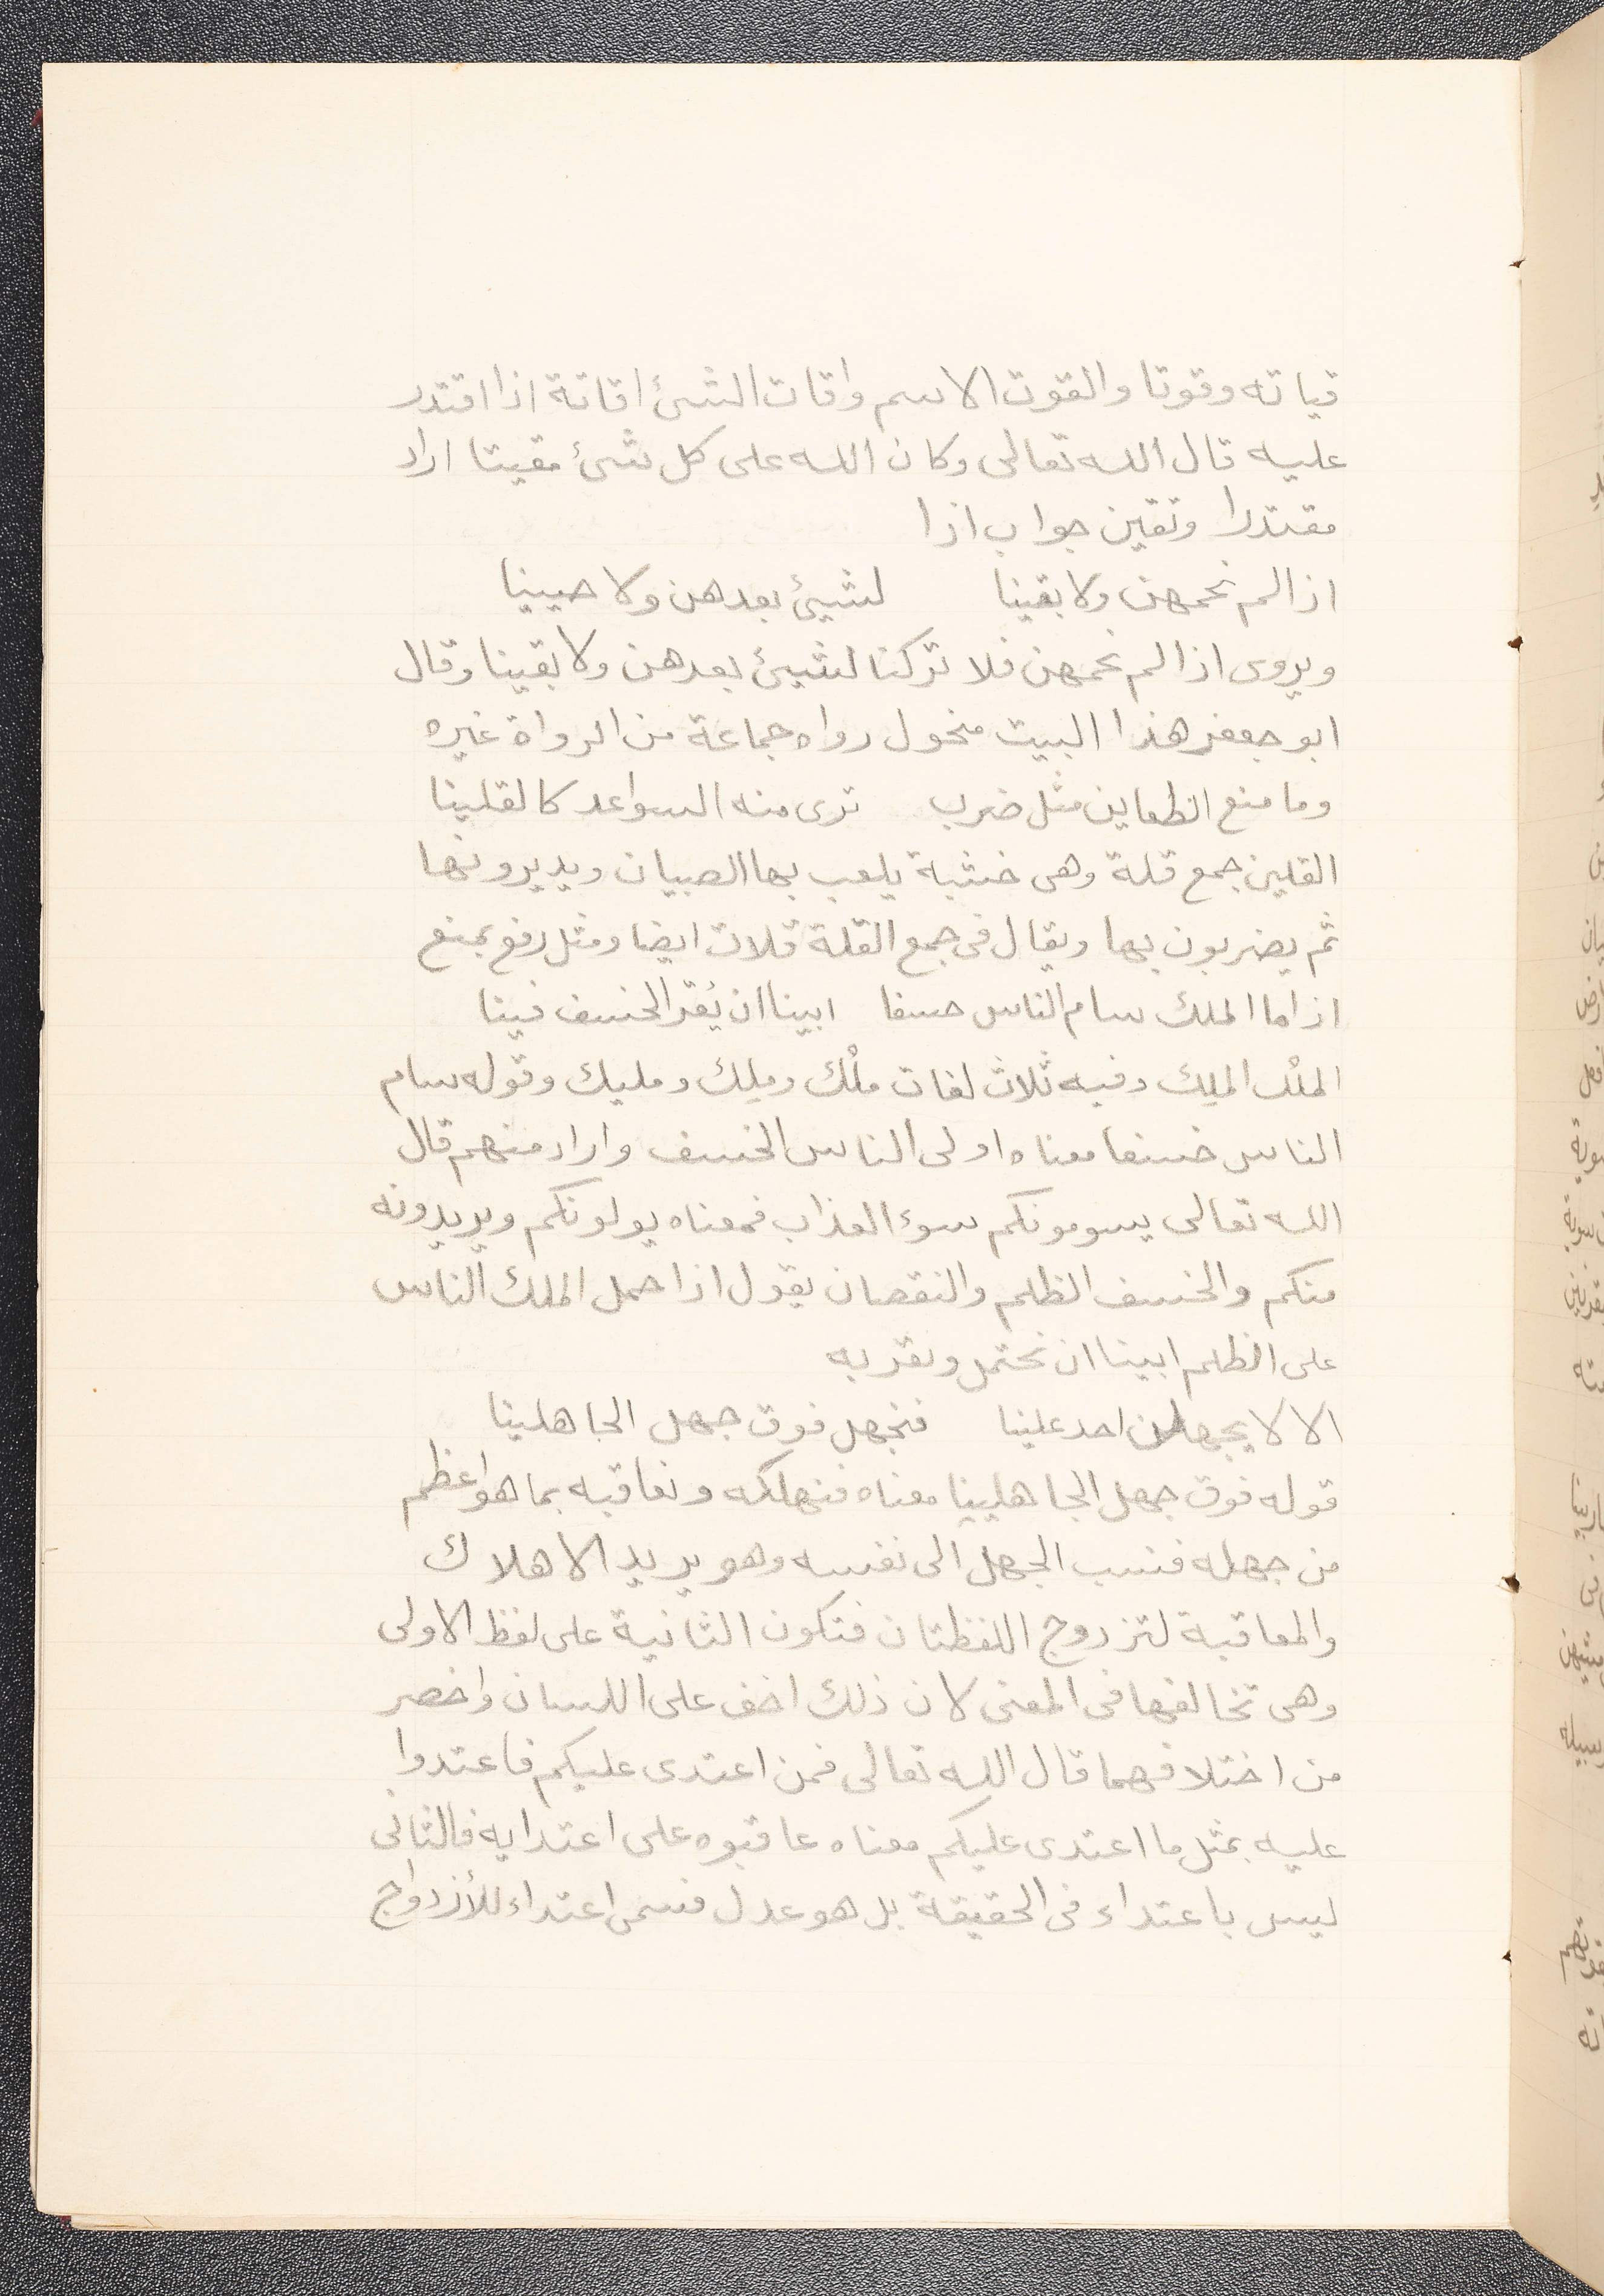 قياته وقوتا والقوت الاسم واقات الشئ اقاتة اذا اقتدر
عليه قال الله تعالى وكان الله على كل شئ مقيتا اراد
مقتدرا وتقين جواب اذا
اذا لم نحمهن ولا بقينا لشيئ بعدهن ولا حيينا
ويروى اذا لم نحمهن فلا تركنا لشيئ بعدهن ولا بقينا وقال
ابو جعفر هذا البيت منحول رواه جماعة من الرواة غيره
وما منع الظعاين مثل ضرب ترى منه السواعد كالقلينا
القلين جمع قلة وهى خشبة يلعب بها الصبيان ويديرونها
ثم يضربون بها ويقال فى جمع القلة قلات ايضا ومثل رفع بمنع
اذا ما الملك سام الناس خسفا ابينا ان يُقر الخسف فينا
الملْك الملِك وفيه ثلاث لغات ملْك وملِك ومليك وقوله سام
الناس خسفا معناه اولى الناس الخسف واراد منهم قال
الله تعالى يسومونكم سوء العذاب فمعناه يولونكم ويريدونه
منكم والخسف الظلم والنقصان يقول اذا حمل الملك الناس
على الظلم ابينا ان نحتمل ونقر به
الا لا يجهلن احد علينا فنجهل فوق جهل الجاهلينا
قوله فوق جهل الجاهلينا معناه فنهلكه ونعاقبه بما هو اعظم
من جهله فنسب الجهل الى نفسه وهو يريد الاهلاك
والمعاقبة لتزدوج اللفظتان فتكون الثانية على لفظ الاولى
وهى تخالفها فى المعنى لان ذلك اخف على اللسان واخصر
من اختلافهما قال الله تعالى فمن اعتدى عليكم فاعتدوا
عليه بمثل ما اعتدى عليكم معناه عاقبوه على اعتدايه فالثانى
ليس باعتداء فى الحقيقة بل هو عدل فسمى اعتداء للأزدواج